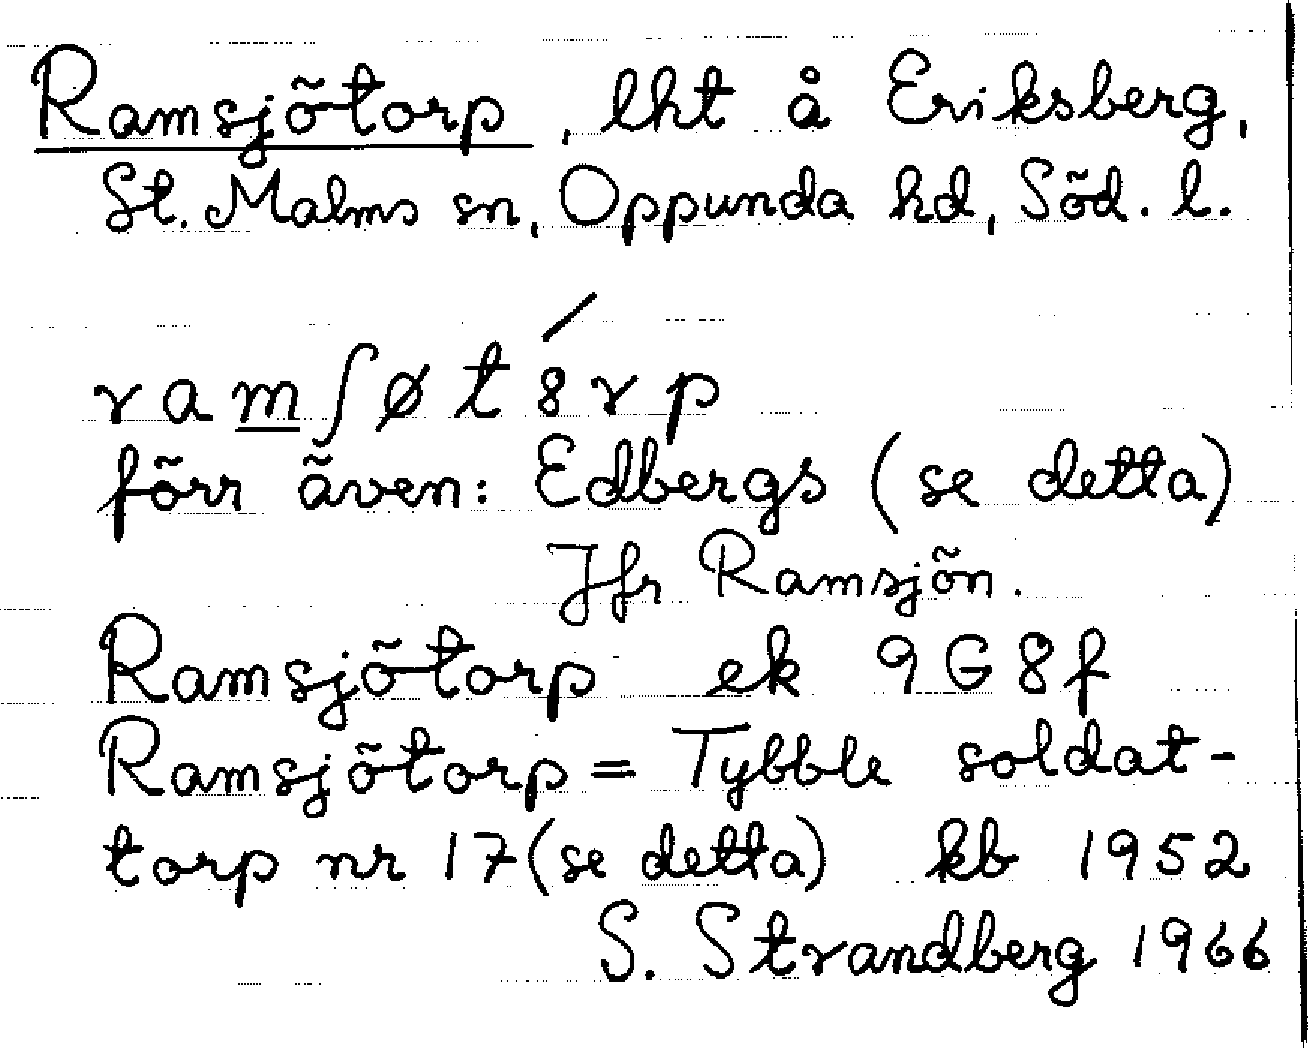 Ramsjötorp, lht å Eriksberg,
St. Malms sn, Oppunda hd, Söd. l.
ram̲ʃøtȣ́rp
förr även: Edbergs (se detta)
Jfr Ramsjön.
Ramsjötorp ek 9G8f
Ramsjötorp = Tybble soldat-
torp nr 17 (se detta) kb 1952
S. Strandberg 1966